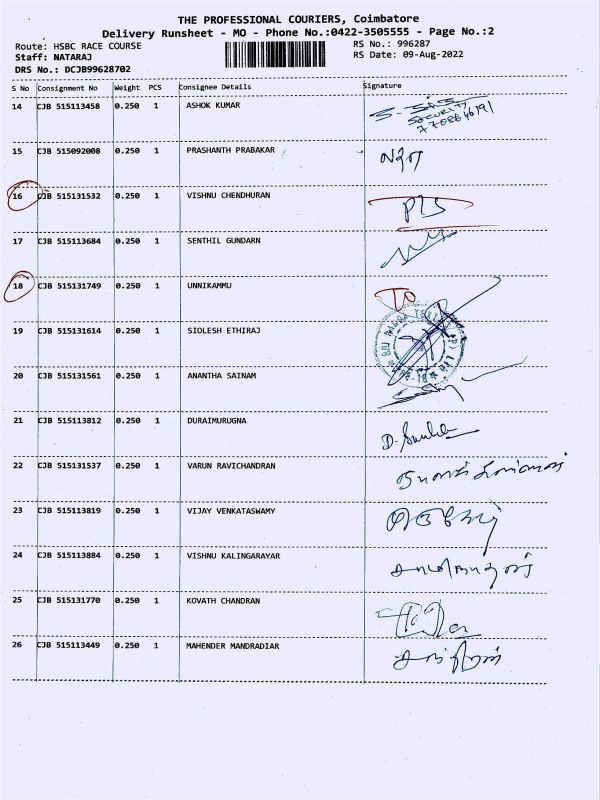 THE PROFESSIONAL COURIERS, Coimbatore
Delivery Runsheet - MO - Phone No.:0422-3505555 - Page No.:2
Route: HSBC RACE COURSE
RS No.: 996287
Staff: NATARAJ
RS Date: 09-Aug-2022
DRS No.: DCJB99628702
S No Consignment No Weight PCS Consignee Details Signature
14 CJB 515113458 0.250 1 ASHOK KUMAR
SECURITY
15 CJB 515092008 0.250 1 PRASHANTH PRABAKAR
16 CJB 515131532 0.250 1 VISHNU CHENDHURAN PLS
17 CJB 515113684 0.250 1 SENTHIL GUNDARN
18 CJB 515131749 0.250 1 UNNIKAMMU TO
19 CJB 515131614 0.250 1 SIOLESH ETHIRAJ
20 CJB 515131561 0.250 1 ANANTHA SAINAM
21 CJB 515113812 0.250 1 DURAIMURUGNA
22 CJB 515131537 0.250 1 VARUN RAVICHANDRAN
23 CJB 515113819 0.250 1 VIJAY VENKATASWAMY
24 CJB 515113884 0.250 1 VISHNU KALINGARAYAR
25 CJB 515131770 0.250 1 KOVATH CHANDRAN
26 CJB 515113449 0.250 1 MAHENDER MANDRADIAR